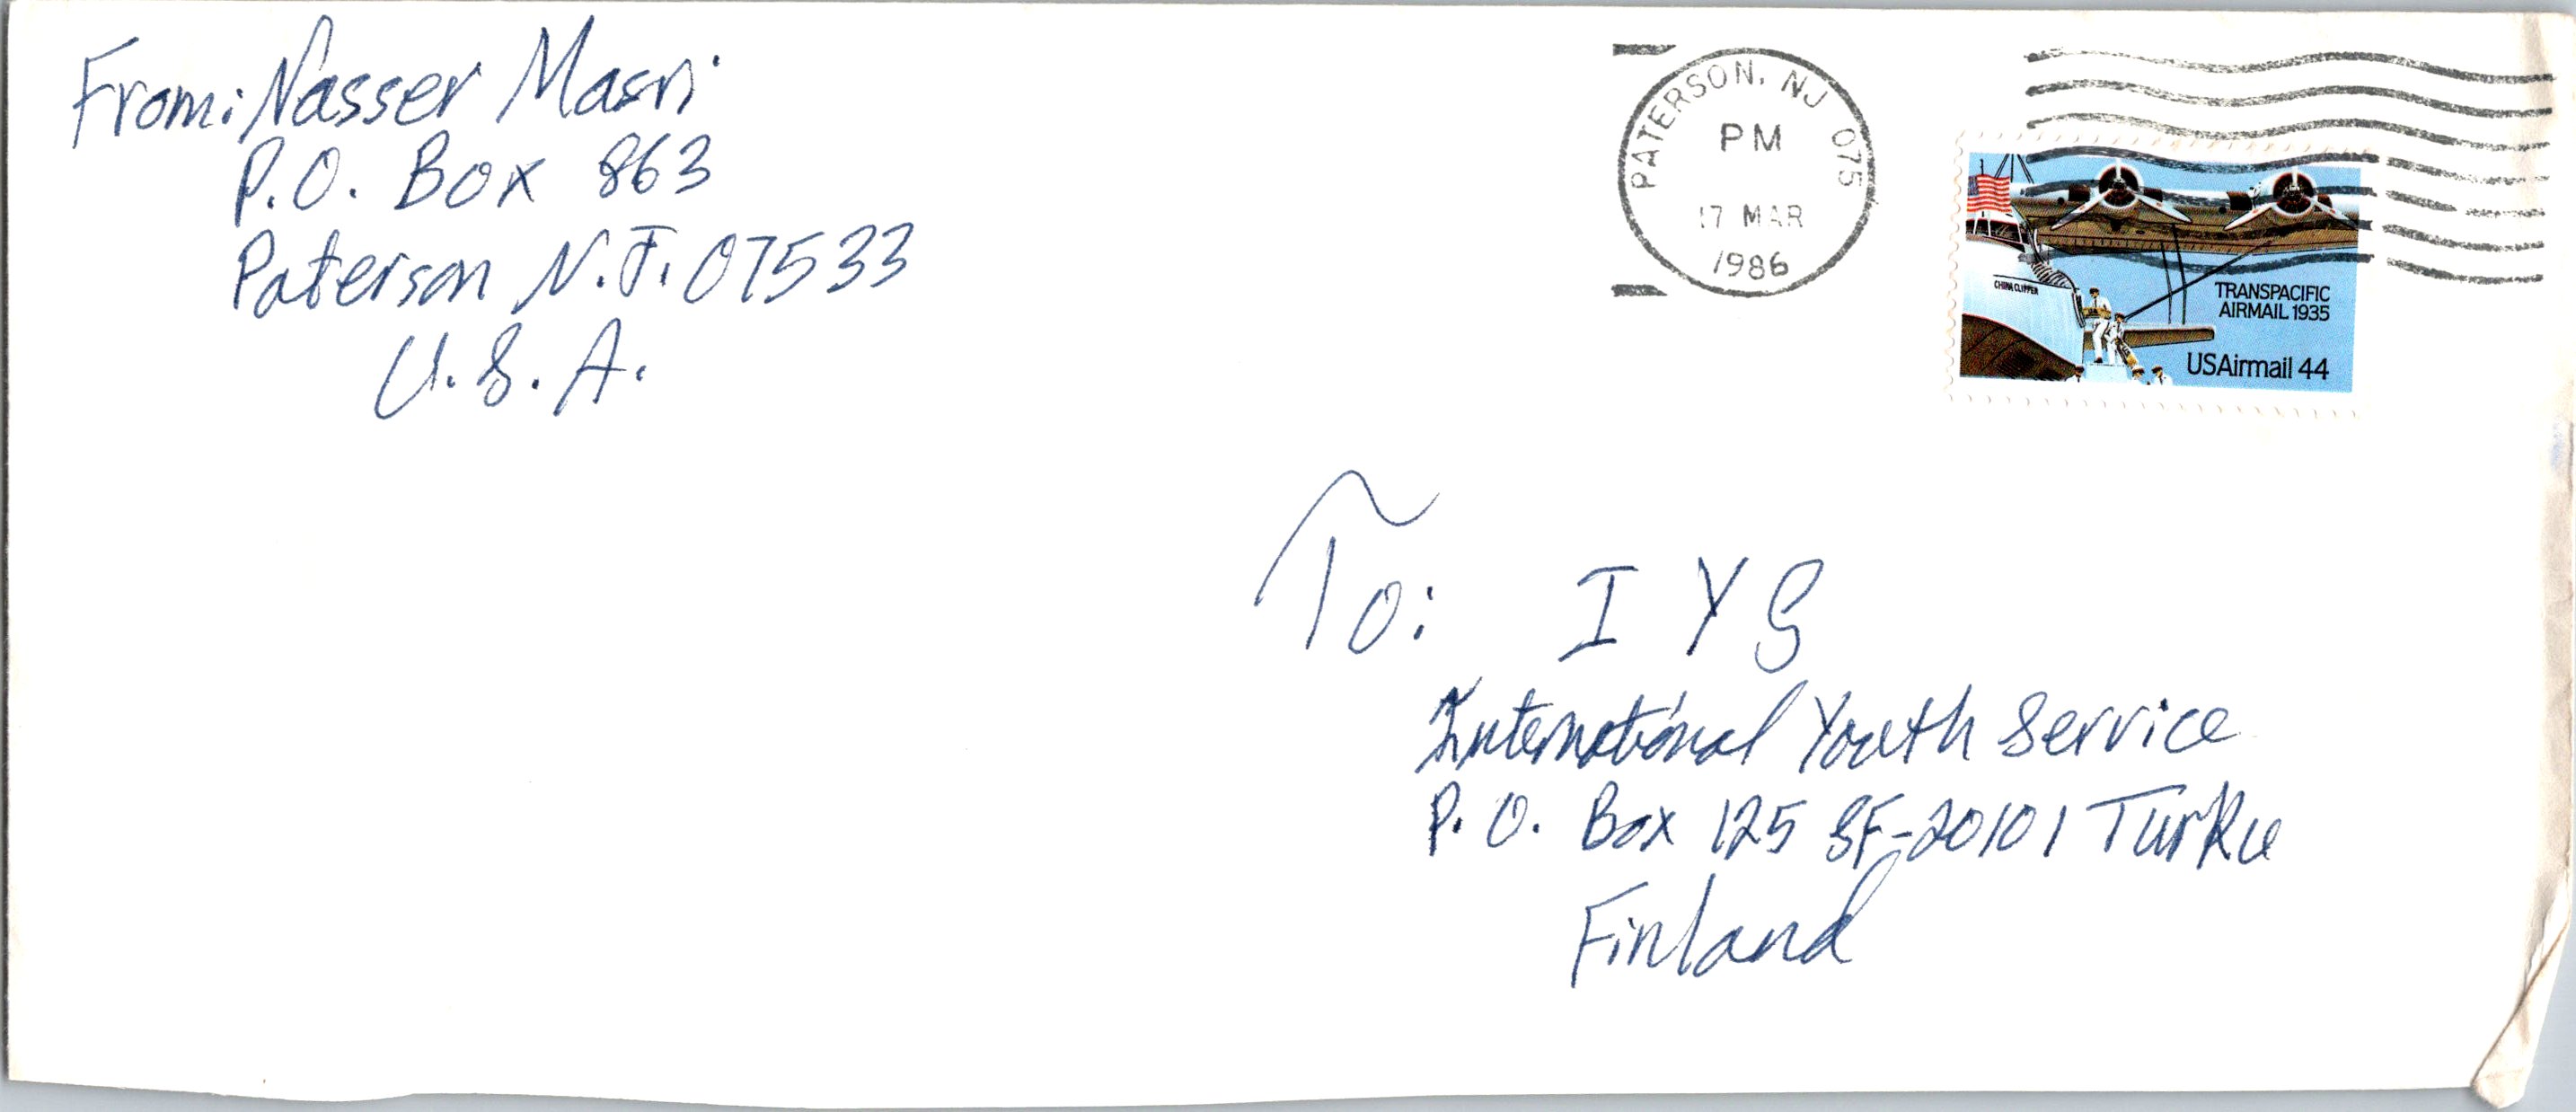 From: Nasser Masri
P.O. Box 863
Paterson N.J. 07533
U.S.A.
PATERSON, NJ 075
PM
17 MAR
1986
CHINA CLIPPER
TRANSPACIFIC
AIRMAIL 1935
USAirmail 44
To: I Y S
International Youth Service
P.O. Box 125 SF-20101 Turku
Finland